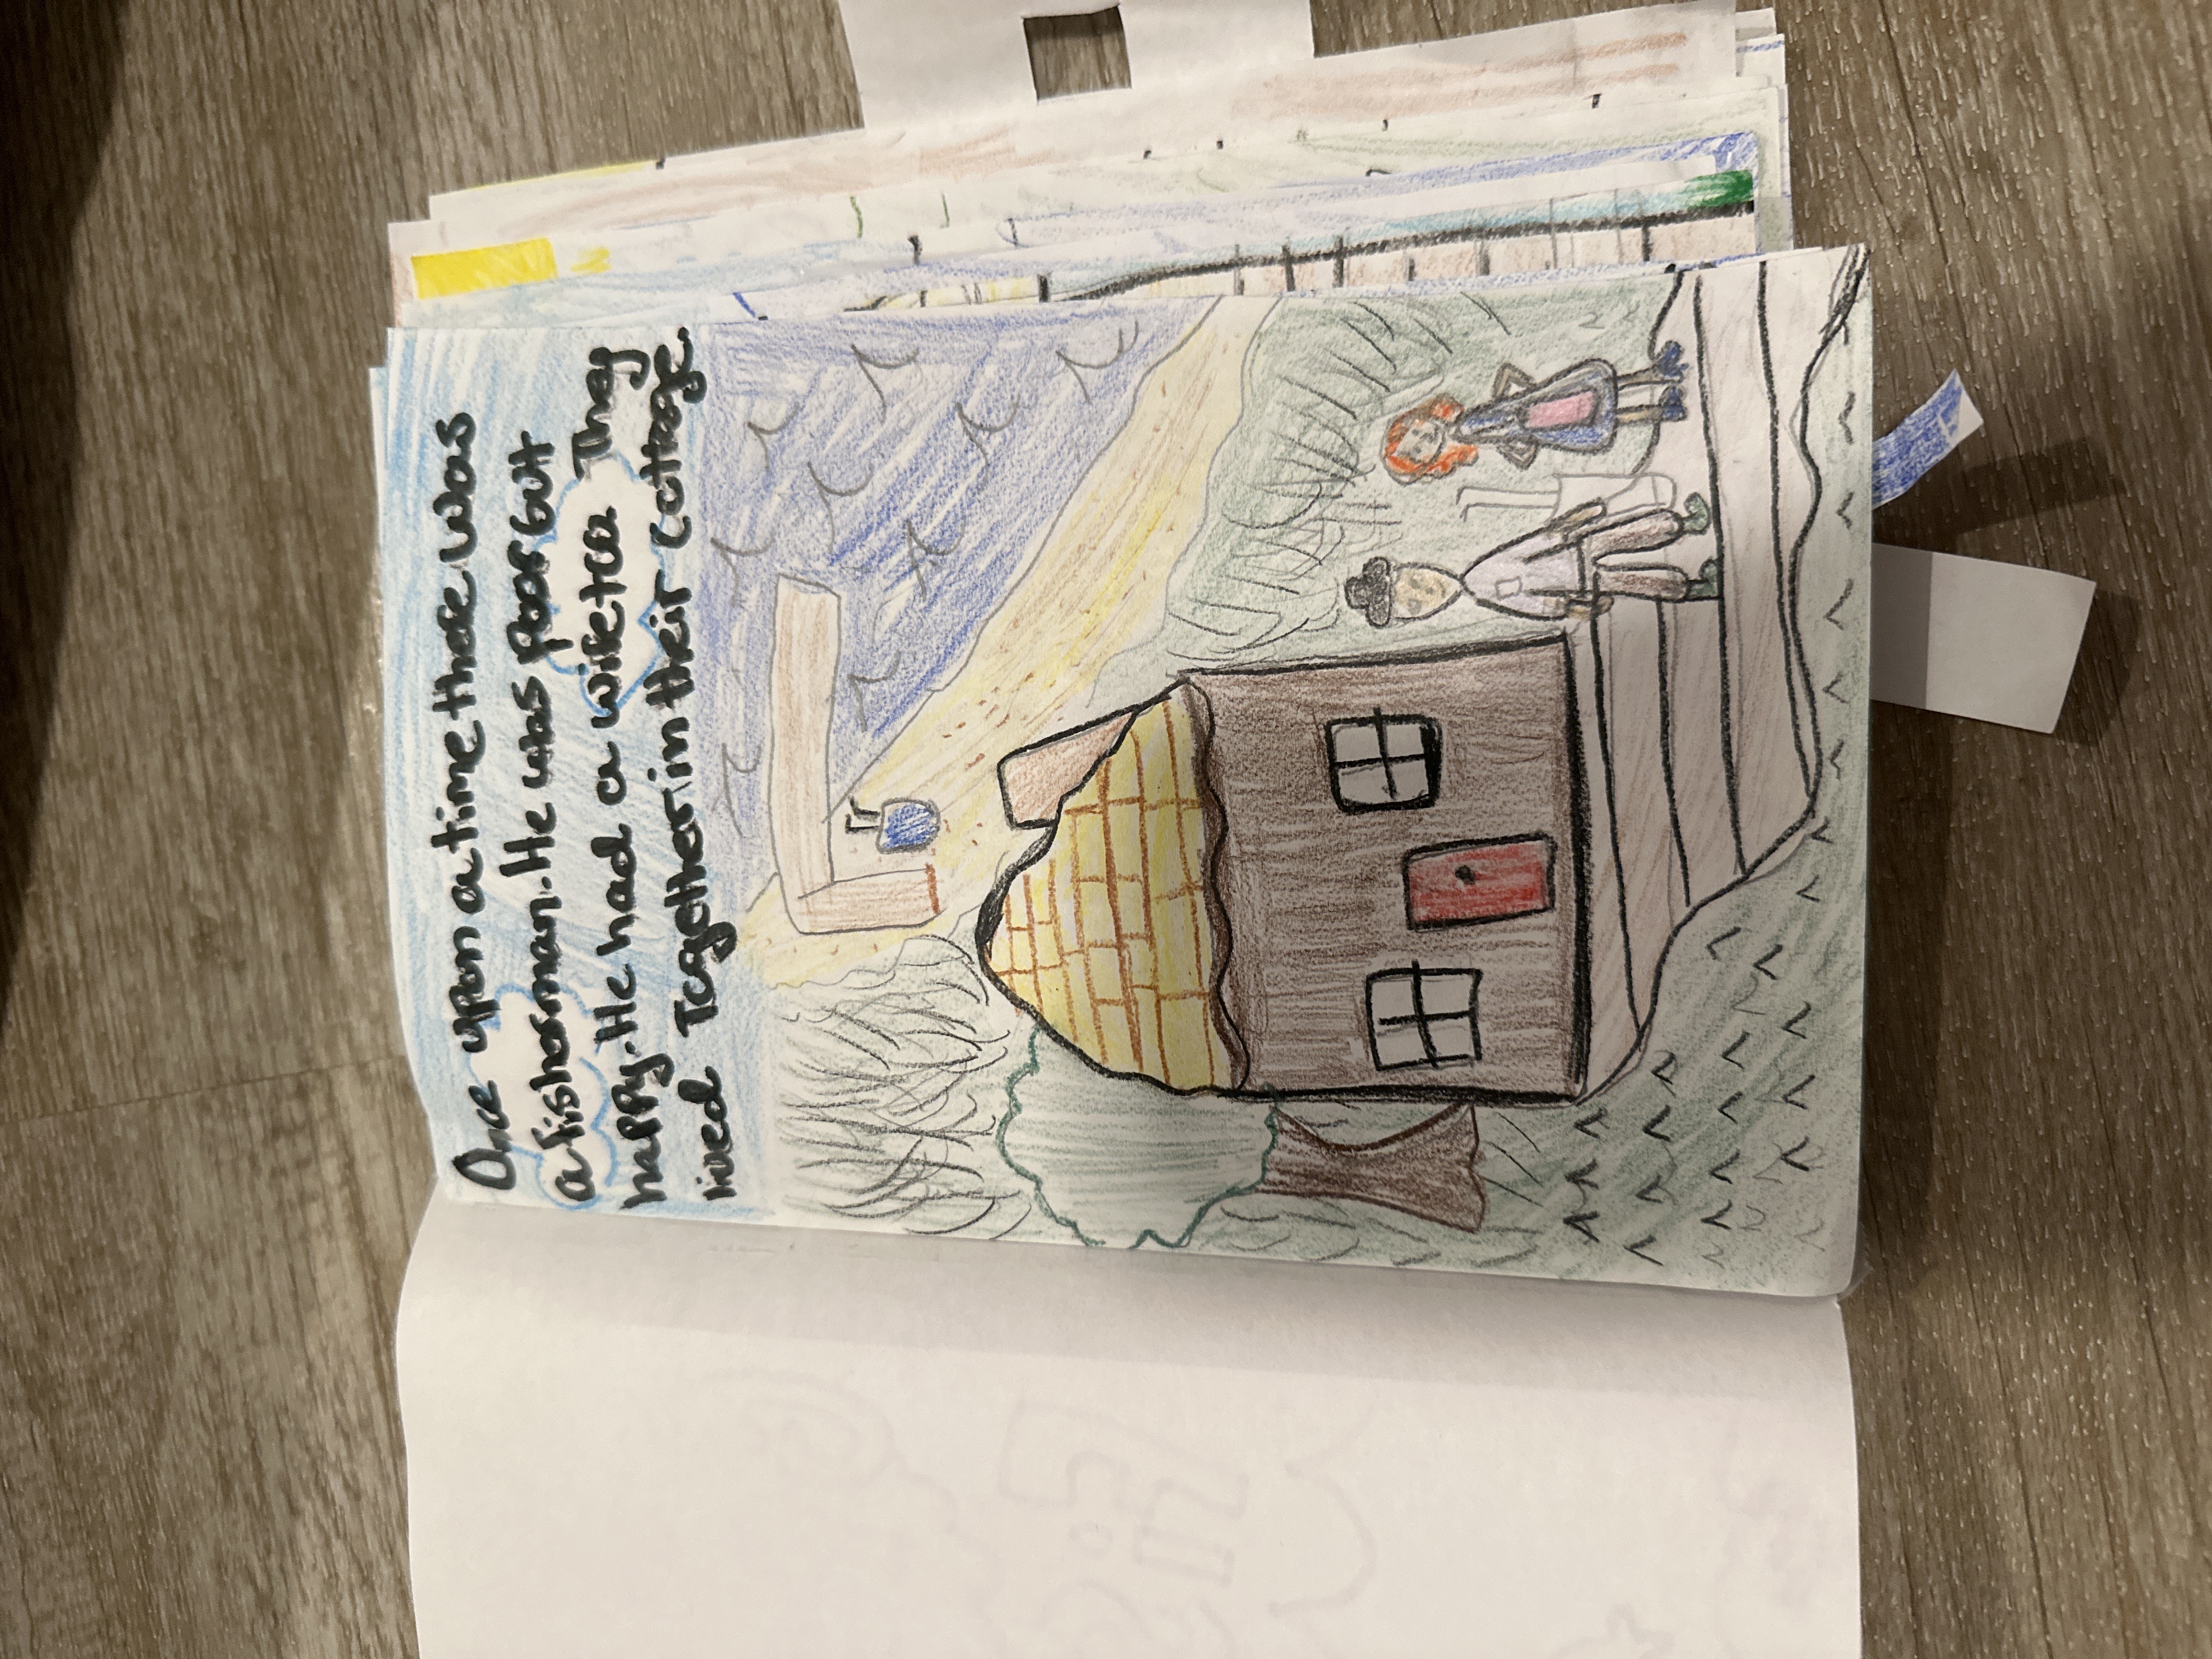 Once upon a time there was
a fisherman. He was poor but
happy. He had a wife too They
lived Together in their cottage.